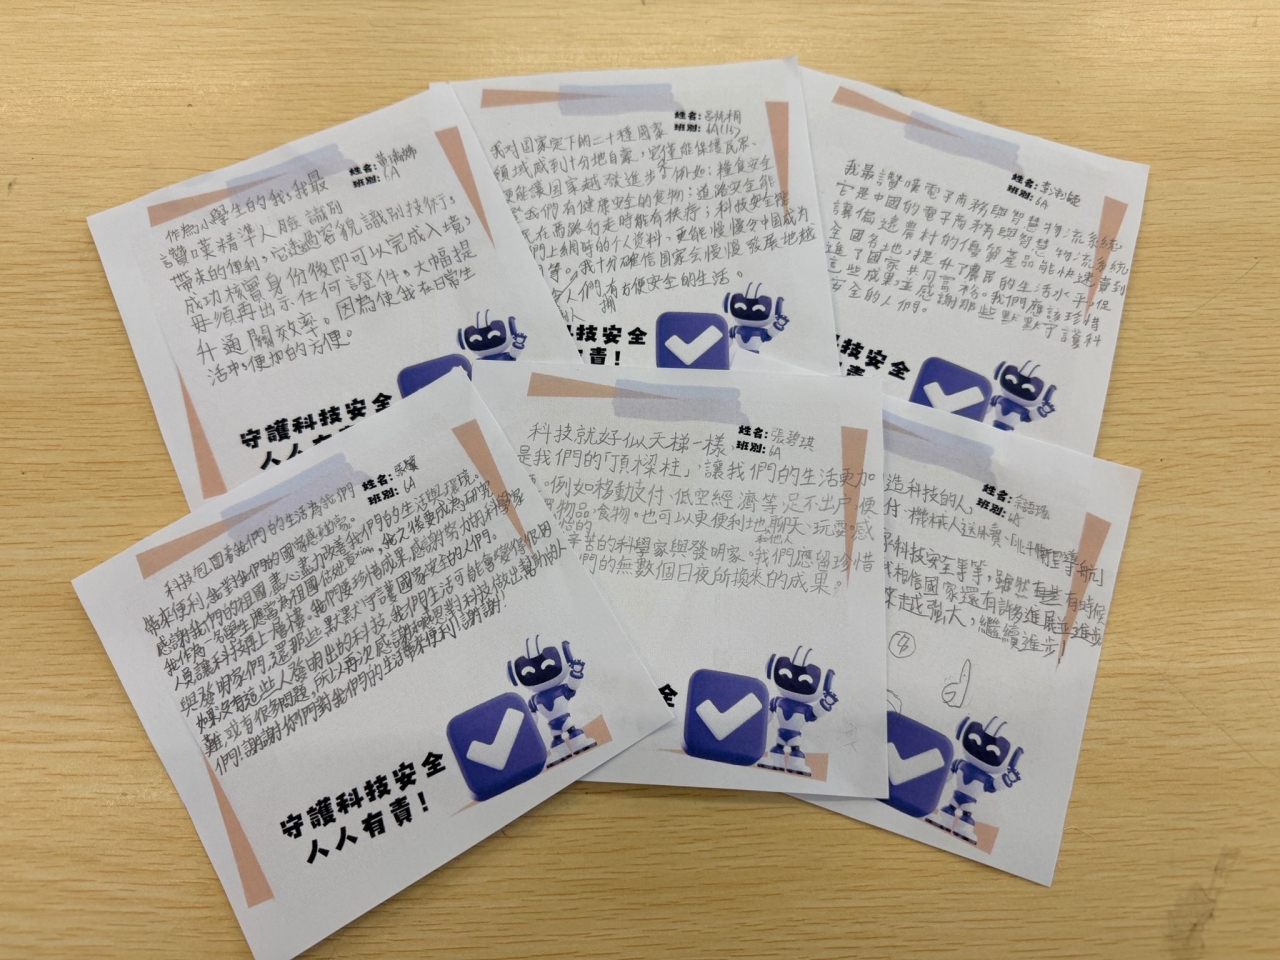 姓名:
班別: 6A
作為小學生的我,我最
讚嘆精準人臉識別
帶來的便利。它透過容貌識別技術。
成功核實身份後即可以完成入境,
毋須再出示任何證件。大幅提
升通關效率。因為使我在日常生
活中更加的方便。
守護科技安全
人人有
姓名:
班別: 6A(16)
我對國家定下的二十種國家
領域感到十分地自豪,它僅能保護民眾、
更能讓國家越發進步。例如:糧食安全
我們有健康安全的食物;道路安全能
在馬路行走時能有秩序;科技安全能
們上網時的個人資料、更能慢慢令中國成為
等。我十分確信國家會慢慢發展地越
人們有方便安全的生活。
技安全
責!
姓名:
班別: 6A
我最讚嘆電子商務與智慧物流系統,
它是中國的電子商務與智慧物流系統
讓偏遠農村的優質產品能快速賣到
全國各地,提升了農民的生活水平,促
進了國家共同富裕。我們應該珍惜
這些成果,並感謝那些默默守護科
安全的人們。
技安全
姓名:
班別: 6A
科技包圍著我們的生活為我們
帶來便利,我對我們的國家感動
感謝我們的祖國盡心盡力改善我們的生活與環境。
我作為一名學生應當為祖國做
人員讓科技更上層樓。我們優珍惜成果感謝努力的科學家
與發明家們,還那些默默守護國家安全的人們。
如果沒有這些人發明出的科技,我們生活可能會變得很困
難,或有很多問題,所以再次感謝對科技做出幫助的人
們!謝謝你們對我們的生活帶來便利!謝謝!
守護科技安全
人人有責!
姓名: 張碧琪
班別: 6A
科技就好似天梯一樣,
是我們的「頂樑柱」,讓我們的生活更加
。例如移動支付、低空經濟等足不出戶便
物品、食物。也可以更便利地和他人聊天、玩耍。感
辛苦的科學家與發明家。我們應留珍惜
們的無數個日夜所換來的成果。
姓名:
班別:
造科技的人,
付、機械人送外賣、「北斗衛星導航」
科技安全等等,雖然有些有時候
我相信國家還有許多進展並進步
來越強大,繼續進步